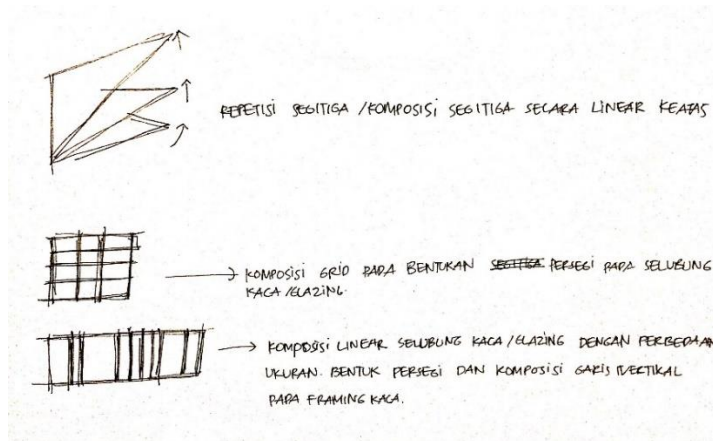 REPETISI SEGITIGA / KOMPOSISI SEGITIGA SECARA LINEAR KEATAS
KOMPOSISI GRID PADA BENTUKAN SEGITIGA PERSEGI PADA SELUBUNG
KACA / GLAZING.
KOMPOSISI LINEAR SELUBUNG KACA / GLAZING DENGAN PERBEDAAN
UKURAN. BENTUK PERSEGI DAN KOMPOSISI GARIS VERTIKAL
PADA FRAMING KACA.